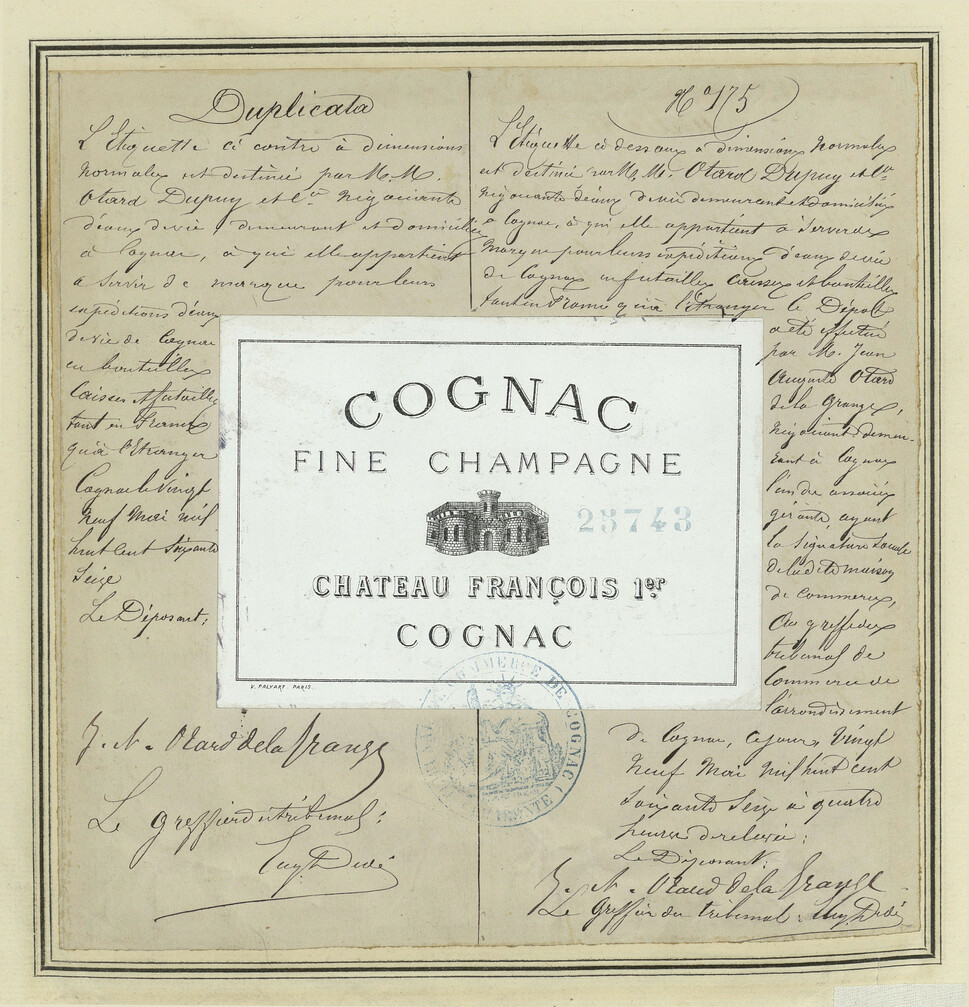 Duplicata
L'Etiquette ci contre à dimensions
normales est destinée par M.M.
Otard Dupuy et Cie Négociants
d'eaux de vie demeurant et domiciliés
à Cognac, à qui elle appartient
a servir de marque pour leurs
expéditions d'eaux
de vie de Cognac
en bouteilles
Caisses et futailles
tant en France
qu'à l'Etranger
Cognac le Vingt
neuf Mai mil
huit cent soixante
Seize
Le Déposant:
J. A. Otard de la Grange
Le greffier du tribunal:
No 175
L'Etiquette ci dessous a dimensions normales
est destinée par M.M. Otard Dupuy et Cie
négociants d'eaux de vie demeurant et domiciliés
a Cognac, à qui elle appartient à Servir de
Marque pour leurs expéditions d'eaux de vie
de Cognac en futailles caisses et bouteilles
tant en France qu'à l'étranger le Dépôt
a été effectué
par M. Jean
Auguste Otard
de la Grange,
négociant demeu-
rant à Cognac
l'un des associés
gérants, ayant
la Signature Sociale
de la dite maison
de Commerce,
Au greffe du
tribunal de
Commerce de
l'arrondissement
de Cognac, ce jour, Vingt
neuf Mai mil huit cent
soixante Seize à quatre
heures de relevée:
Le Déposant:
J. A. Otard de la Grange
Le Greffier du tribunal:
COGNAC
FINE CHAMPAGNE
23743
CHATEAU FRANÇOIS 1er
COGNAC
V. PALYART. PARIS.
COMMERCE DE COGNAC (CHARENTE)